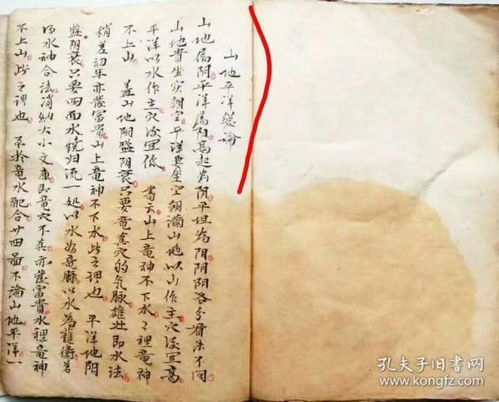 山地平洋總論
山地屬阴平洋屬阳高起為阴平坦為阳阴阳各分看法不同
山地貴坐实朝空平洋要坐空朝满山地以山作主穴後宜高
平洋以水作主穴後宜低 書云山上竜神不下水水裡竜神
不上山 葢山地阳盛阴衰只要竜真穴的氣脉雄壮即水法
稍差初年亦發富貴山上竜神不下水此之谓也 平洋地阴
盛阳衰只要四面水繞归流一处以水為竜脉以水為護衛若
得水神合法消納大小文庫即竜穴不真亦發富貴水裡竜神
不上山此之谓也 不於竜水配合廿四畵不論山地平洋一
孔夫子旧書网
www.kongfz.com